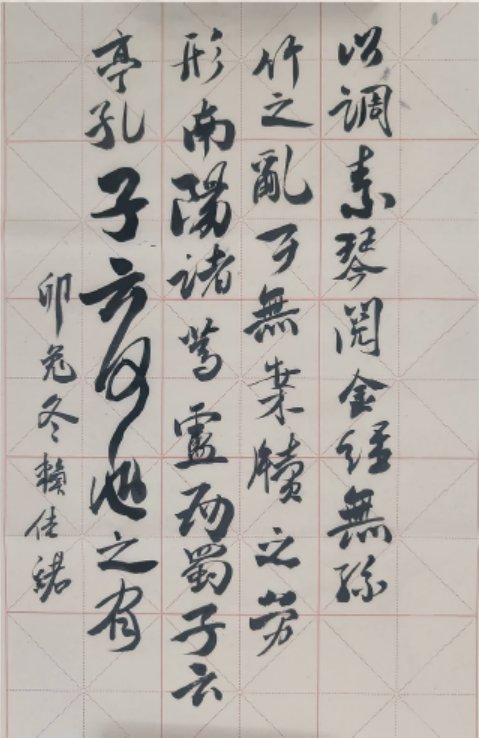 以調素琴閱金經無絲
竹之亂耳無案牘之勞
形南陽諸葛廬西蜀子云
亭孔子云何陋之有
卯兔冬賴佳